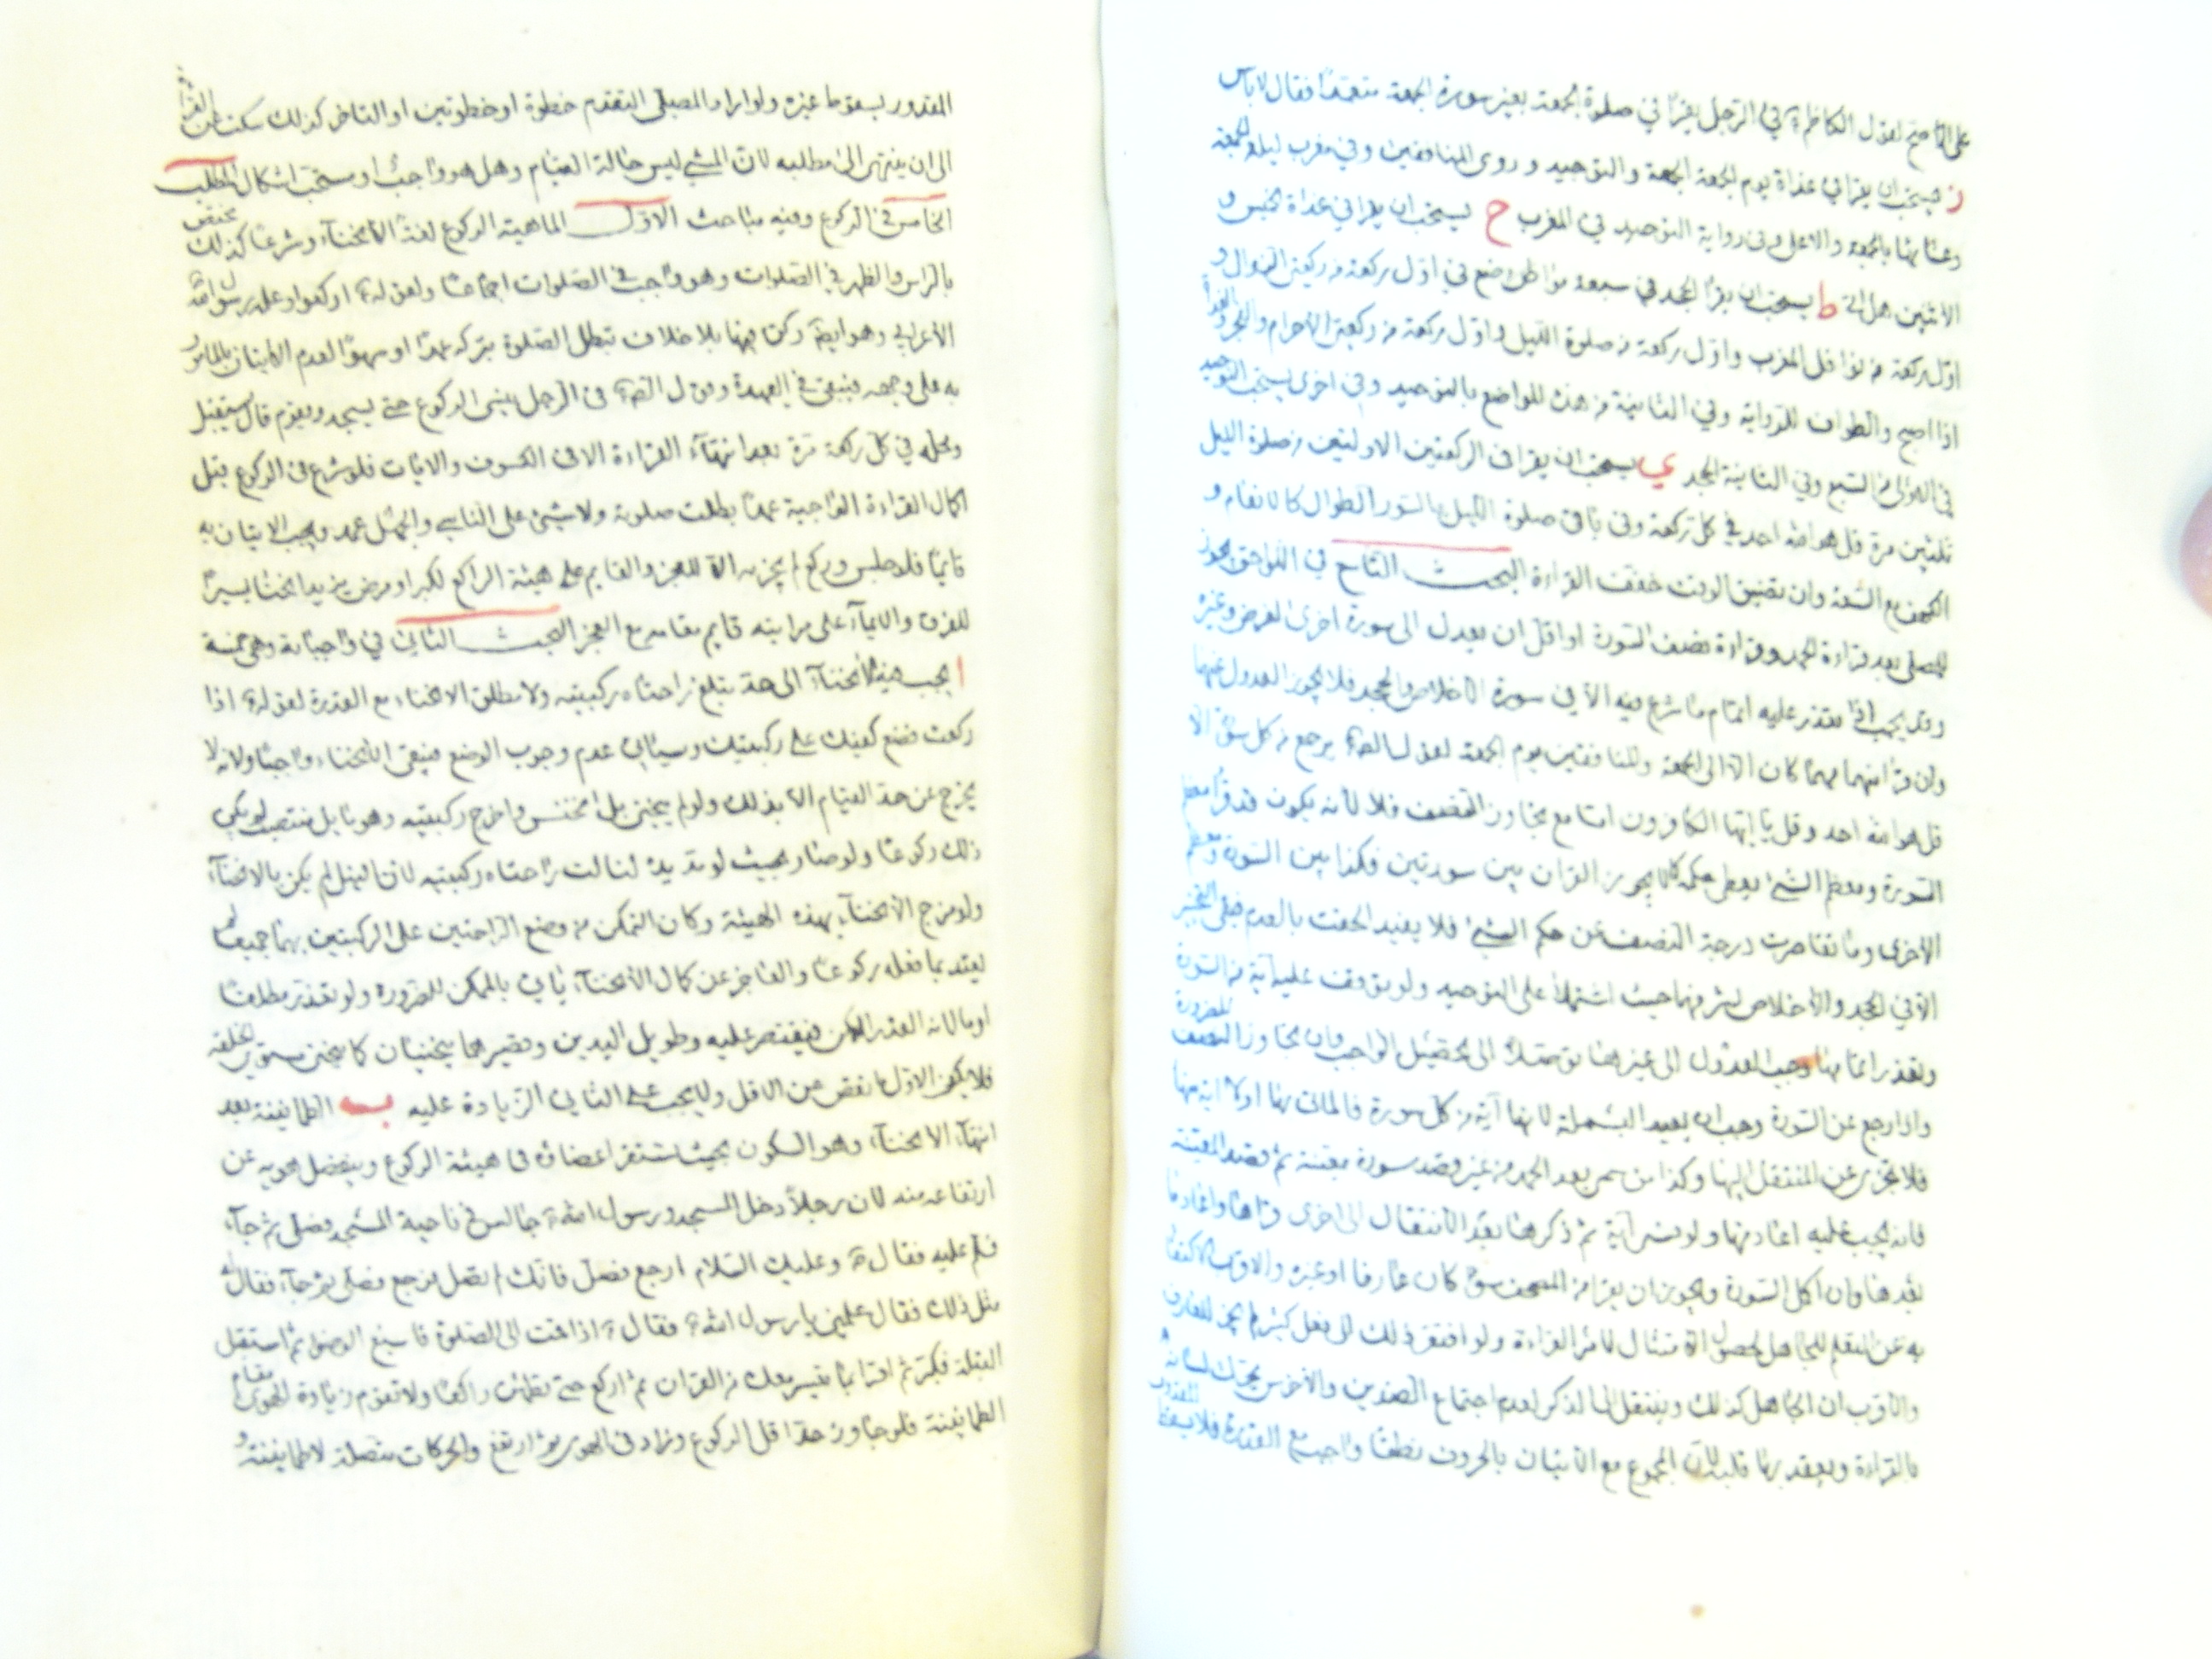 على الأصح لقول الكاظم ع في الرجل يقرأ في صلوة الجمعة بغير سورة الجمعة متعمدا فقال لا بأس
ز يستحب ان يقرأ في غداة يوم الجمعة الجمعة والتوحيد و روى المنافقين وفي مغرب ليلة الجمعة
وعشائها بالجمعة والاعلى وفى رواية التوحيد في المغرب ح يستحب ان يقرأ في غداة الخميس و
الاثنين هل اتى ط يستحب ان يقرأ الجحد في سبعة مواضع في اول ركعة من ركعتي الزوال و
اول ركعة من نوافل المغرب واول ركعة من صلوة الليل واول ركعة من ركعتي الاحرام والفجر والغداة
اذا اصبح والطواف للرواية وفي الثانية من هذه المواضع بالتوحيد وفي اخرى يستحب التوحيد
في الاولى من السبع وفي الثانية الجحد ي يستحب ان يقرأ فى الركعتين الاولتين من صلوة الليل
ثلثين مرة قل هو الله احد في كل ركعة وفى باقى صلوة الليل بالسور الطوال كالانعام و
الكهف مع السعة وان تضيق الوقت خفف القراءة البحث التاسع في اللواحق يجوز
للمصلى بعد قراءة الحمد وقراءة نصف السورة او اقل ان يعدل الى سورة اخرى لغرض وغيره
وقد يجب اذا تعذر عليه اتمام ما شرع فيه الا في سورة الاخلاص والجحد فلا يجوز العدول عنهما
وان قرأ منهما مهما كان الا الى الجمعة والمنافقين يوم الجمعة لقول الص ع يرجع من كل سورة الا
قل هو الله احد وقل يا ايها الكافرون اما مع تجاوز النصف فلا لانه يكون قد قرأ معظم
السورة ومعظم الشئ يعطى حكمه كما لا يجوز القران بين سورتين فكذا بين السورة ومعظم
الاخرى وما تقاصرت درجة النصف عن حكم الشئ فلا يفيد الحقت بالعدم فبقى التخيير
الا في الجحد والاخلاص لشرفهما حيث اشتملا على التوحيد ولو توقف عليه آية من السورة
وتعذر اتمامها وجب العدول الى غيرها توصلا الى تحصيل الواجب وان تجاوز النصف للضرورة
واذا رجع عن السورة وجب ان يعيد البسملة لانها آية من كل سورة فالماتى بها اولا آية منها
فلا تجزى عن المنتقل اليها وكذا من سمى بعد الحمد من غير قصد سورة معينة ثم قصد المعينة
فانه يجب عليه اعادتها ولو نسى آية ثم ذكرها بعد الانتقال الى اخرى قراها واعاد ما
بعدها وان اكمل السورة ويجوز ان يقرأ من المصحف سواء كان عارفا او غيره والاقرب الاكتفاء
به عن التعلم للجاهل لحصول الامتثال لامر القراءة ولو افتقر ذلك الى فعل كثير لم يجز للعارف
والاقرب ان الجاهل كذلك وينتقل الى الذكر لعدم اجتماع الضدين والاخرس يحرك لسانه
بالقراءة ويعقد بها قلبه لان المجموع مع الاتيان بالحروف نطقا واجب مع القدرة فلا يسقط المقدور
المقدور بسقوط غيره ولو اراد المصلى التقدم خطوة او خطوتين او التاخر كذلك سكت عن القراءة
الى ان ينتهى الى مطلبه لان المشي ليس حالة القيام وهل هو واجب او مستحب اشكال المطلب
الخامس في الركوع وفيه مباحث الاول الماهية الركوع لغة الانحناء وشرعا كذلك مختص
بالراس والظهر في الصلوات وهو واجب في الصلوات اجماعا ولقوله تع اركعوا وعلمه رسول الله
الاعرابي وهو ايضا ركن فيها بلا خلاف تبطل الصلوة بتركه عمدا او سهوا لعدم الاتيان بالمامور
به على وجهه فيبقى في العهدة وقول الص ع فى الرجل ينسى الركوع حتى يسجد ويقوم قال يستقبل
ومحله في كل ركعة مرة بعد انتهاء القراءة الا فى الكسوف والايات فلو شرع فى الركوع قبل
اكمال القراءة الواجبة عمدا بطلت صلوته ولا شئ على الناسي والجهل عمد ويجب الاتيان به
قائما فلو جلس وركع لم يجزيه الا للعجز والقايم على هيئة الراكع لكبر او مرض يزيد انحناء يسيرا
للفرق والايماء على مراتبه قايم مقامه مع العجز البحث الثاني في واجباته وهى خمسة
ا يجب فيه الانحناء الى حد تبلغ راحتاه ركبتيه ولا مطلق الانحناء مع القدرة لقوله ع اذا
ركعت فضع كفيك على ركبتيك وسيأتى عدم وجوب الوضع فيبقى الانحناء واجبا ولانه لا
يخرج عن حد القيام الا بذلك ولو لم ينحن بل انخنس واخرج ركبتيه وهو مايل منتصب لم يكن
ذلك ركوعا ولو صار بحيث لو مد يديه لنالت راحتاه ركبتيه لان النيل لم يكن بالانحناء
ولو مزج الانحناء بهذه الهيئة وكان التمكن من وضع الراحتين على الركبتين بهما جميعا لم
يعتد بما فعله ركوعا والعاجز عن كمال الانحناء ياتى بالممكن للضرورة ولو تعذر مطلقا
اوما لانه القدر الممكن فيقتصر عليه وطويل اليدين وقصيرهما ينحنيان كما ينحنى مستوى الخلقة
فلا يكفى الاول ما نقص عن الاقل ولا يجب على الثانى الزيادة عليه ب الطمانينة بعد
انتهاء الانحناء وهو السكون بحيث تستقر اعضاؤه فى هيئة الركوع وينفصل هويه عن
ارتفاعه منه لان رجلا دخل المسجد ورسول الله ص جالس فى ناحية المسجد فصلى ثم جاء
فسلم عليه فقال ص وعليك السلام ارجع فصل فانك لم تصل فرجع فصلى ثم جاء فقال له
مثل ذلك فقال علمنى يا رسول الله ص فقال ص اذا قمت الى الصلوة فاسبغ الوضوء ثم استقبل
القبلة فكبر ثم اقرا بما تيسر معك من القران ثم اركع حتى تطمئن راكعا ولا تقوم زيادة الهوى مقام
الطمانينة فلو جاوز حد اقل الركوع وزاد فى الهوى ثم ارتفع والحركات متصلة لا طمانينة و